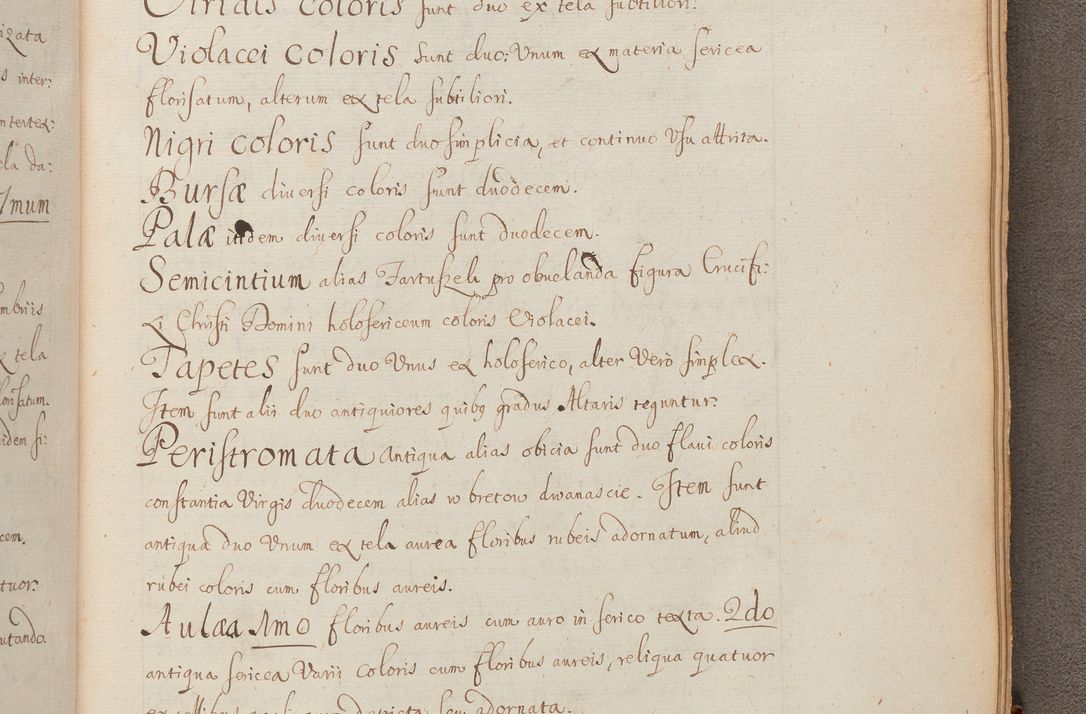 izata
Viridis coloris sunt duo ex tela subtiliori.
s inter:
Violacei coloris sunt duo; Unum ex materia sericea
florisatum, alterum ex tela subtiliori.
ntertex:
Nigri coloris sunt duo simplicia, et continuo Usu attrita.
ela da:
Bursæ diversi coloris sunt duodecem.
1mum
Palæ itidem diversi coloris sunt duodecem.
Semicintium alias Fartuszek pro obuelanda figura Crucifi:
mbriis
xi Christi Domini holosericeum coloris Violacei.
x tela
Tapetes sunt duo Unus ex holoserico, alter Vero simplex.
lorisatum.
Item sunt alii duo antiquiores quibq gradus Altaris teguntur.
idem si:
Peristromata antiqua alias obicia sunt duo flavi coloris
constantia Virgis duodecem alias w bretow dwanascie. Item sunt
antiqua duo Unum ex tela aurea floribus rubeis adornatum, aliud
cem.
rubei coloris cum floribus aureis.
tuor.
Aulæa 1mo floribus aureis cum auro in serico texta. 2do
utando.
antiqua sericea Varii coloris cum floribus aureis, reliqua quatuor
seu adornata.